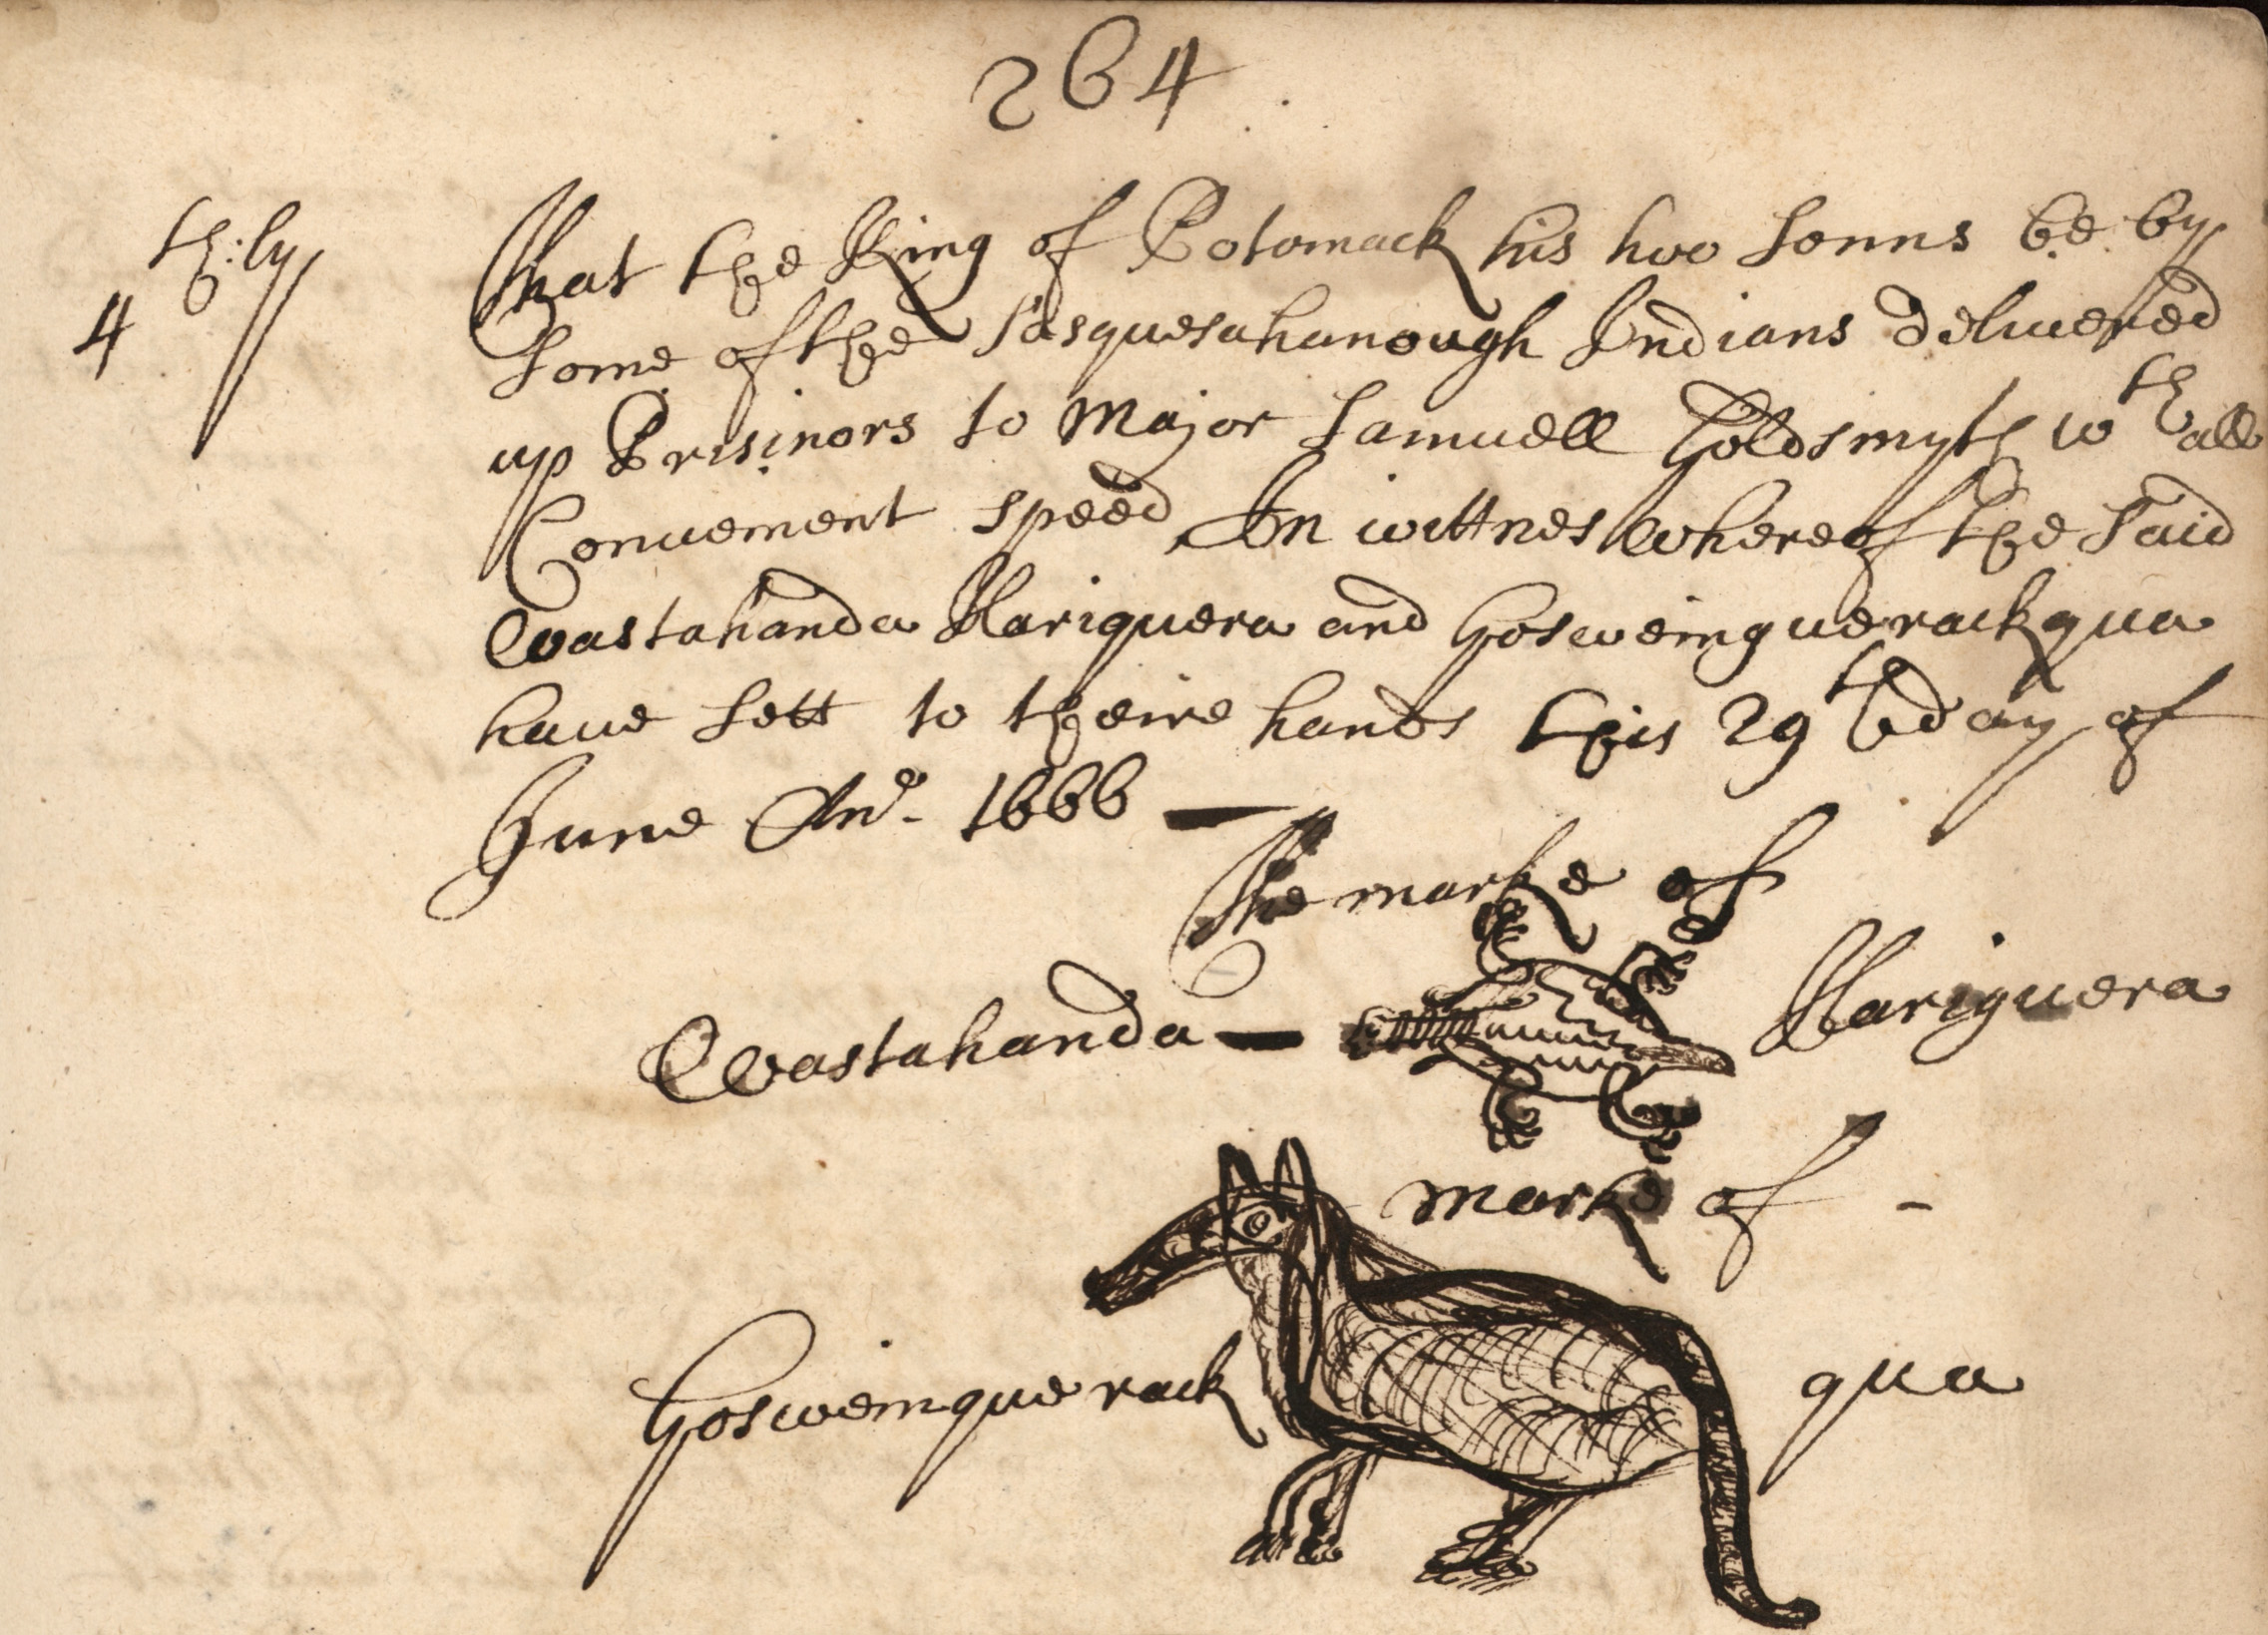 264
4th:ly That the King of Potomack his two Sonns be by
Some of the Sasquesahanough Indians delivered
up Prisinors to Major Samuell Goldsmyth wth all
Convenient speed In wittnes whereof the Said
Wastahanda Hariquera and Gosweinguerackqua
have Sett to theire hands this 29th day of
June Ano. 1666 —
The marke of
Wastahanda — Hariguera
marke of -
Gosweinquerack qua